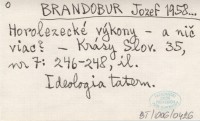 BRANDOBUR Jozef 1958...
Horolezecké výkony - a nič
viac? - Krásy Slov. 35,
nr 7: 246-248, il.
Ideologia tatern.